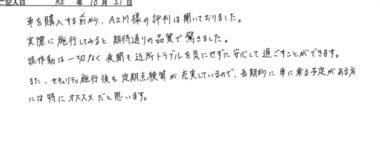 ご記入日 R5年10月21日
車を購入する前から、A2M様の評判は聞いておりました。
実際に施行してみると期待通りの品質で驚きました。
誤作動は一切なく夜間も近所トラブルを気にせずに安心して過ごすことができます。
また、セキュリティ施行後も定期点検等が充実しているので、長期的に車に乗る予定がある方
には特にオススメだと思います。